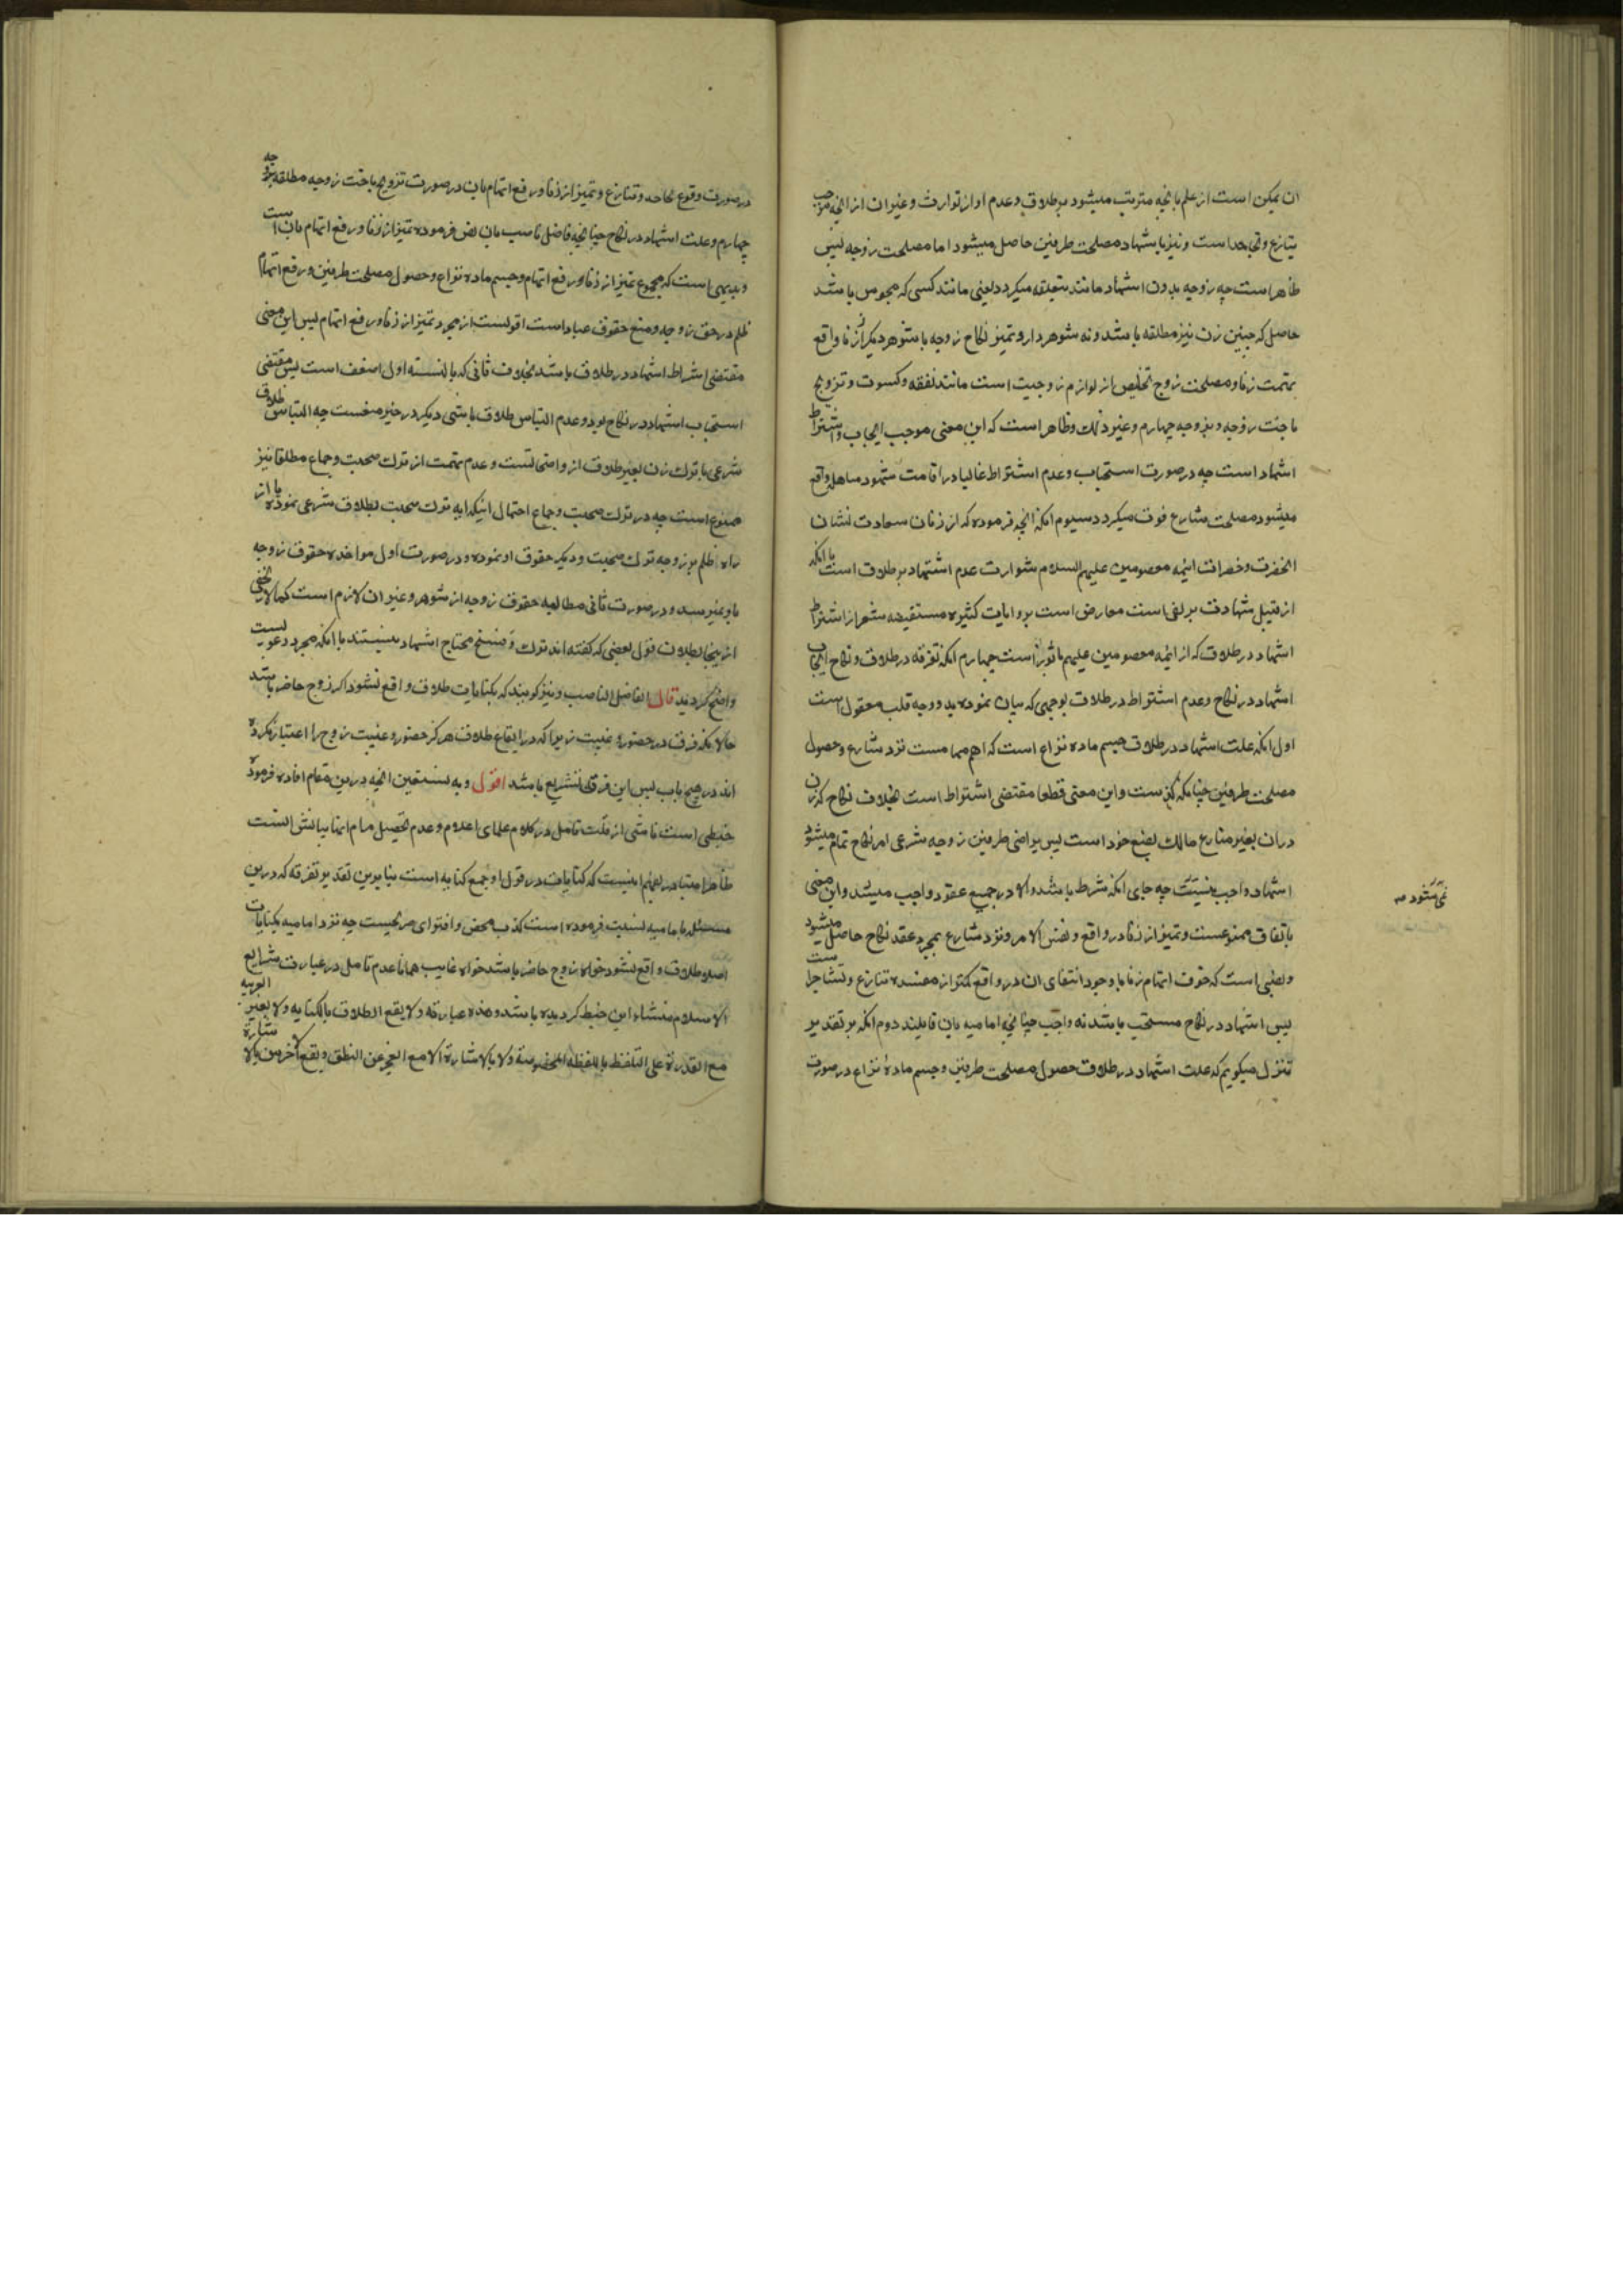 ان ممکن است از علم بانچه مترتب میشود بر طلاق و عدم او از توارث و غیر ان از انچه موجب
تنازع و تجاحد است و نیز باشهاد مصلحت طرفین حاصل میشود اما مصلحت زوجه پس
ظاهر است چه زوجه بدون اشهاد مانند معلقه میکردد یعنی مانند کسی که محبوس باشد
حاصل که چنین زن نیز مطلقه باشد و نه شوهردار و تمیز نکاح زوجه با شوهر دیکر از زنا واقع
بتهمت زنا و مصلحت زوج تخلیص از لوازم زوجیت است مانند نفقه و کسوت و تزویج
باخت زوجه و بزوجه چهارم و غیر ذلک و ظاهر است که این معنی موجب ایجاب و اشتراط
اشهاد است چه در صورت استحباب و عدم اشتراط غالبا در اقامت شهود مساهله واقع
میشود مصلحت شارع فوت میکردد سیوم انکه انچه فرموده که از زنان سعادت نشان
انحضرت و حضرات ایمه معصومین علیهم السلام متوارث عدم اشهاد بر طلاق است با انکه
از قبیل شهادت بر نفی است معارض است بروایات کثیره مستفیضه مشعر از اشتراط
اشهاد در طلاق که از ایمه معصومین علیهم ماثور است چهارم انکه تفرقه در طلاق و نکاح ایجاب
اشهاد در نکاح و عدم اشتراط در طلاق بوجهی که بیان نموده بدو وجه قلب معقول است
اول انکه علت اشهاد در طلاق حسم ماده نزاع است که اهم مهامست نزد شارع و حصول
مصلحت طرفین چنانکه کذشت و این معنی قطعا مقتضی اشتراط است بخلاف نکاح که زن
دران بغیر منازع مالک بضع خود است پس بتراضی طرفین زوجه شرعی امر نکاح تمام میشود
اشهاد واجب نیست چه جای انکه شرط باشد و الا در جمیع عقود واجب میشد و این معنی
نمی شود صح
باتفاق ممنوعست و تمیز از زنا در واقع و نفس الامر و نزد شارع بمجرد عقد نکاح حاصل میشود
و بعضی است که خوف اتهام زنا با وجود انتفای ان در واقع کمتر از مفسده تنازع و تشاجر است
پس اشهاد در نکاح مستحب باشد نه واجب چنانچه امامیه بان قایلند دوم انکه بر تقدیر
تنزل میکویم که علت اشهاد در طلاق حصول مصلحت طرفین و حسم ماده نزاع در صورت
در صورت وقوع تجاحد و تنازع و تمیز از زنا و رفع اتهام بان در صورت تزویج باخت زوجه مطلقه بزوجه
چهارم و علت اشهاد در نکاح چنانچه فاضل ناصب بان نص فرموده تمیز از زنا و رفع اتهام بان است
و بدیهی است که مجموع تمیز از زنا و رفع اتهام و حسم ماده نزاع و حصول مصلحت طرفین و رفع اتهام
ظلم در حق زوجه و منع حقوق عباد است اقویست از مجرد تمیز از زنا و رفع اتهام پس این معنی
مقتضی اشتراط اشهاد در طلاق باشد بخلاف ثانی که بالنسبه اول اضعف است پس مقتضی
استحباب اشهاد در نکاح بود و عدم التباس طلاق باشی دیکر در حیز منعست چه التباس طلاق
شرعی با ترک زن بغیر طلاق از واضحاتست و عدم تهمت از ترک صحبت و جماع مطلقا نیز
ممنوع است چه در ترک صحبت و جماع احتمال اینکه ایه ترک صحبت بطلاق شرعی نموده یا از
راه ظلم بر زوجه ترک صحبت و دیکر حقوق او نموده و در صورت اول مواخذه حقوق زوجه
باو نمیرسد و در صورت ثانی مطالبه حقوق زوجه از شوهر و غیر ان لازم است کما لا یخفی
از ینجا بطلان قول بعضی که کفته اند ترک و فسخ محتاج اشهاد نیستند با انکه مجرد دعویست
واضح کردید قال الفاضل الناصب و نیز کویند که بکنایات طلاق واقع نشود اکر زوج حاضر باشد
حالانکه فرق در حضور و غیبت زیرا که در ایقاع طلاق هرکز حضور و غیبت زوج را اعتبار نکرده
اند در هیچ باب پس این فرق تشریع باشد اقول و به نستعین انچه درین مقام افاده فرموده
خبطی است ناشی از قلت تامل در کلام علمای اعلام و عدم تحصیل مرام انها بیانش انست
ظاهرا متبادر بفهم اینست که کنایات در قول او جمع کنایه است بنا برین تقدیر تفرقه که درین
مسئله بامامیه نسبت فرموده است کذب محض و افترای صریحیست چه نزد امامیه بکنایات
اصلا طلاق واقع نشود خواه زوج حاضر باشد خواه غایب همانا عدم تامل در عبارت شرایع
الاسلام منشاء این خبط کردیده باشد و هذه عبارته و لا یقع الطلاق بالکنایه و لا بغیر العربیه
مع القدرة علی التلفظ باللفظه المخصوصة و لا بالاشارة الا مع العجز عن النطق و یقع الاخرس بالاشارة